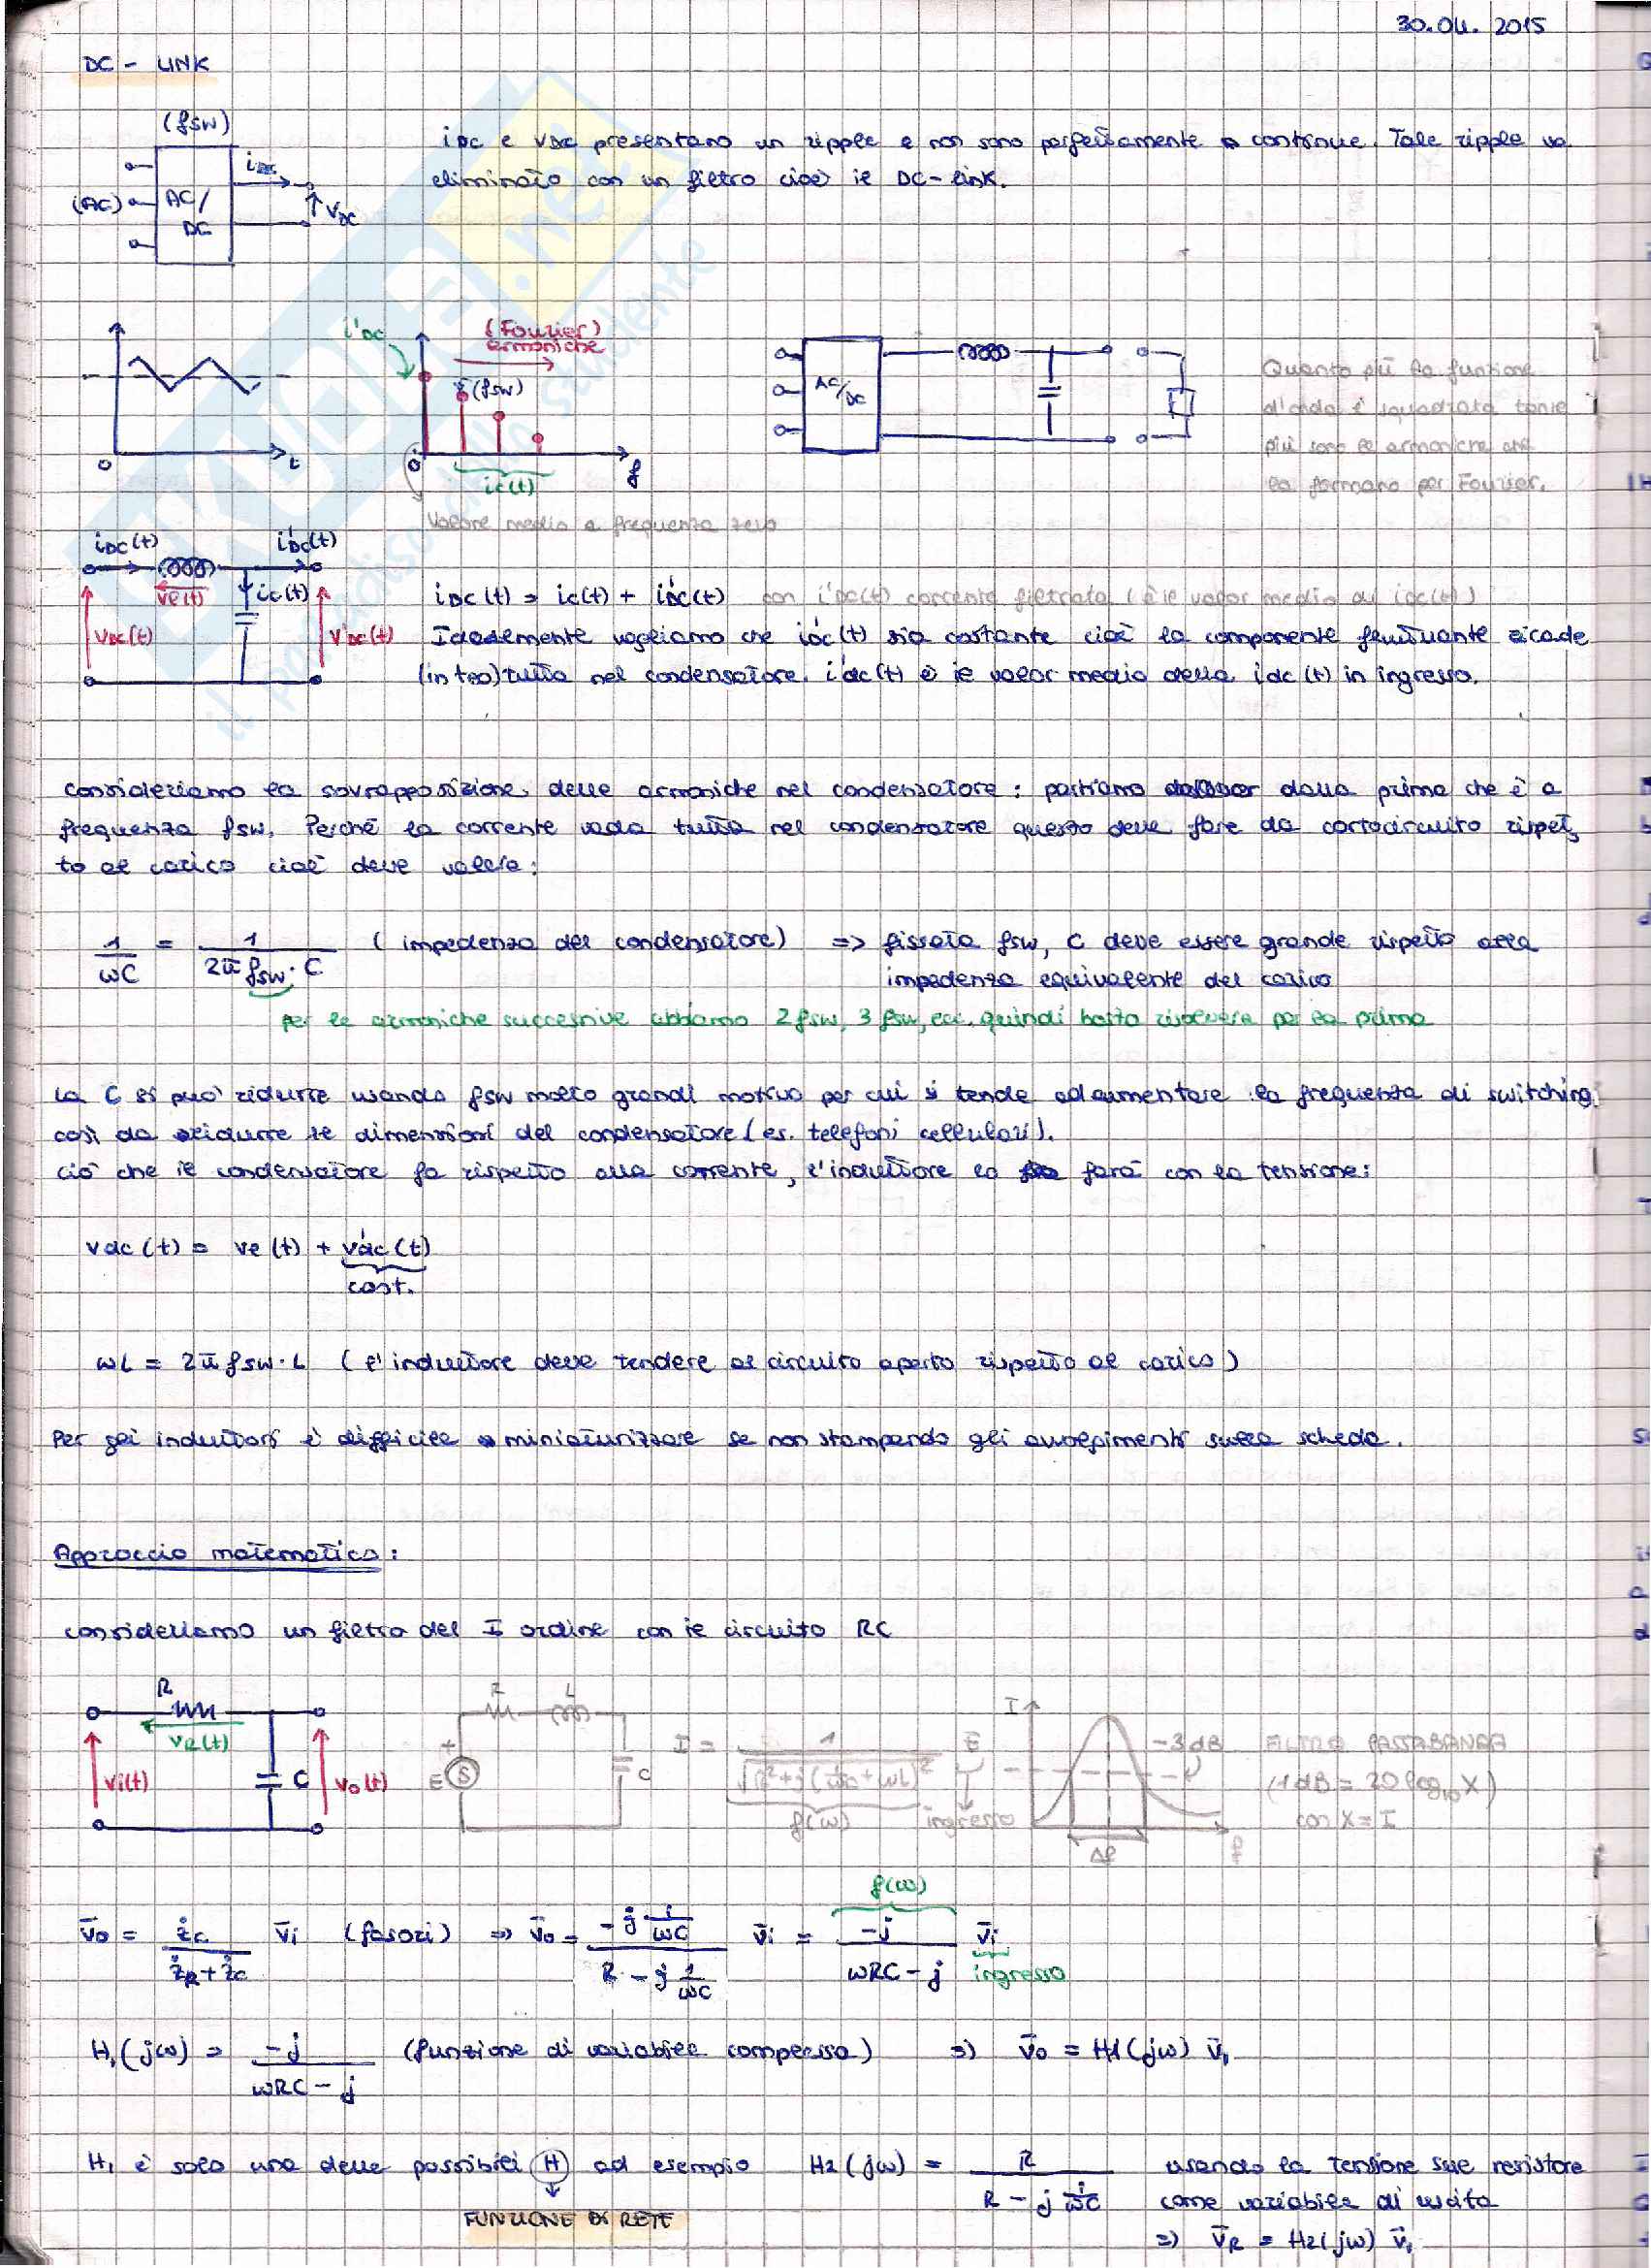 30.04.2015
DC - LINK
(fsw)
iDC e vDC presentano un ripple e non sono perfettamente continue. Tale ripple va
eliminato con un filtro cioè il DC-link.
iDC
(AC) AC/ DC vDC
i'DC (Fourier) armoniche
(fsw)
AC/DC
Quanto più la funzione
d'onda è squadrata tante
più sono le armoniche che
la formano per Fourier.
0 t 0 ic(t) f
Valore medio a frequenza zero
iDC(t) i'DC(t)
ve(t) ic(t)
vDC(t) v'DC(t)
iDC(t) = ic(t) + i'DC(t) con i'DC(t) corrente filtrata (è il valor medio di iDC(t))
Idealmente vogliamo che i'DC(t) sia costante cioè la componente fluttuante ricade
(in teo) tutta nel condensatore. i'dc(t) è il valor medio della idc(t) in ingresso.
consideriamo la sovrapposizione delle armoniche nel condensatore: partiamo dalla prima che è a
frequenza fsw. Perché la corrente vada tutta nel condensatore questo deve fare da cortocircuito rispet-
to al carico cioè deve valere:
1/ωC = 1/(2π fsw · C) (impedenza del condensatore) => fissata fsw, C deve essere grande rispetto alla
impedenza equivalente del carico
per le armoniche successive abbiamo 2fsw, 3fsw, ecc. quindi basta risolvere per la prima
La C si può ridurre usando fsw molto grandi motivo per cui si tende ad aumentare la frequenza di switching
così da ridurre le dimensioni del condensatore (es. telefoni cellulari).
Ciò che il condensatore fa rispetto alla corrente, l'induttore lo farà con la tensione:
vdc(t) = ve(t) + v'dc(t)
cost.
ωL = 2π fsw · L (l'induttore deve tendere al circuito aperto rispetto al carico)
Per gli induttori è difficile miniaturizzare se non stampando gli avvolgimenti sulla scheda.
Approccio matematico:
consideriamo un filtro del I ordine con il circuito RC
R
vR(t)
vi(t) C vo(t)
R L
+ E S C
I = 1/√(R²+j(1/ωC+ωL)² E
f(ω) ingresso
I -3dB
Δf f
FILTRO PASSABANDA
(1dB = 20 log10 X)
con X = I
f(ω)
v̄o = żc/(żR+żc) v̄i (fasori) => v̄o = (-j 1/ωC)/(R - j 1/ωC) v̄i = -j/(ωRC - j) v̄i
ingresso
H1(jω) = -j/(ωRC - j) (funzione di variabile complessa) => v̄o = H1(jω) v̄i
H1 è solo una delle possibili H ad esempio H2(jω) = R/(R - j 1/ωC) usando la tensione sul resistore
come variabile di uscita
FUNZIONE DI RETE
=> v̄R = H2(jω) v̄i